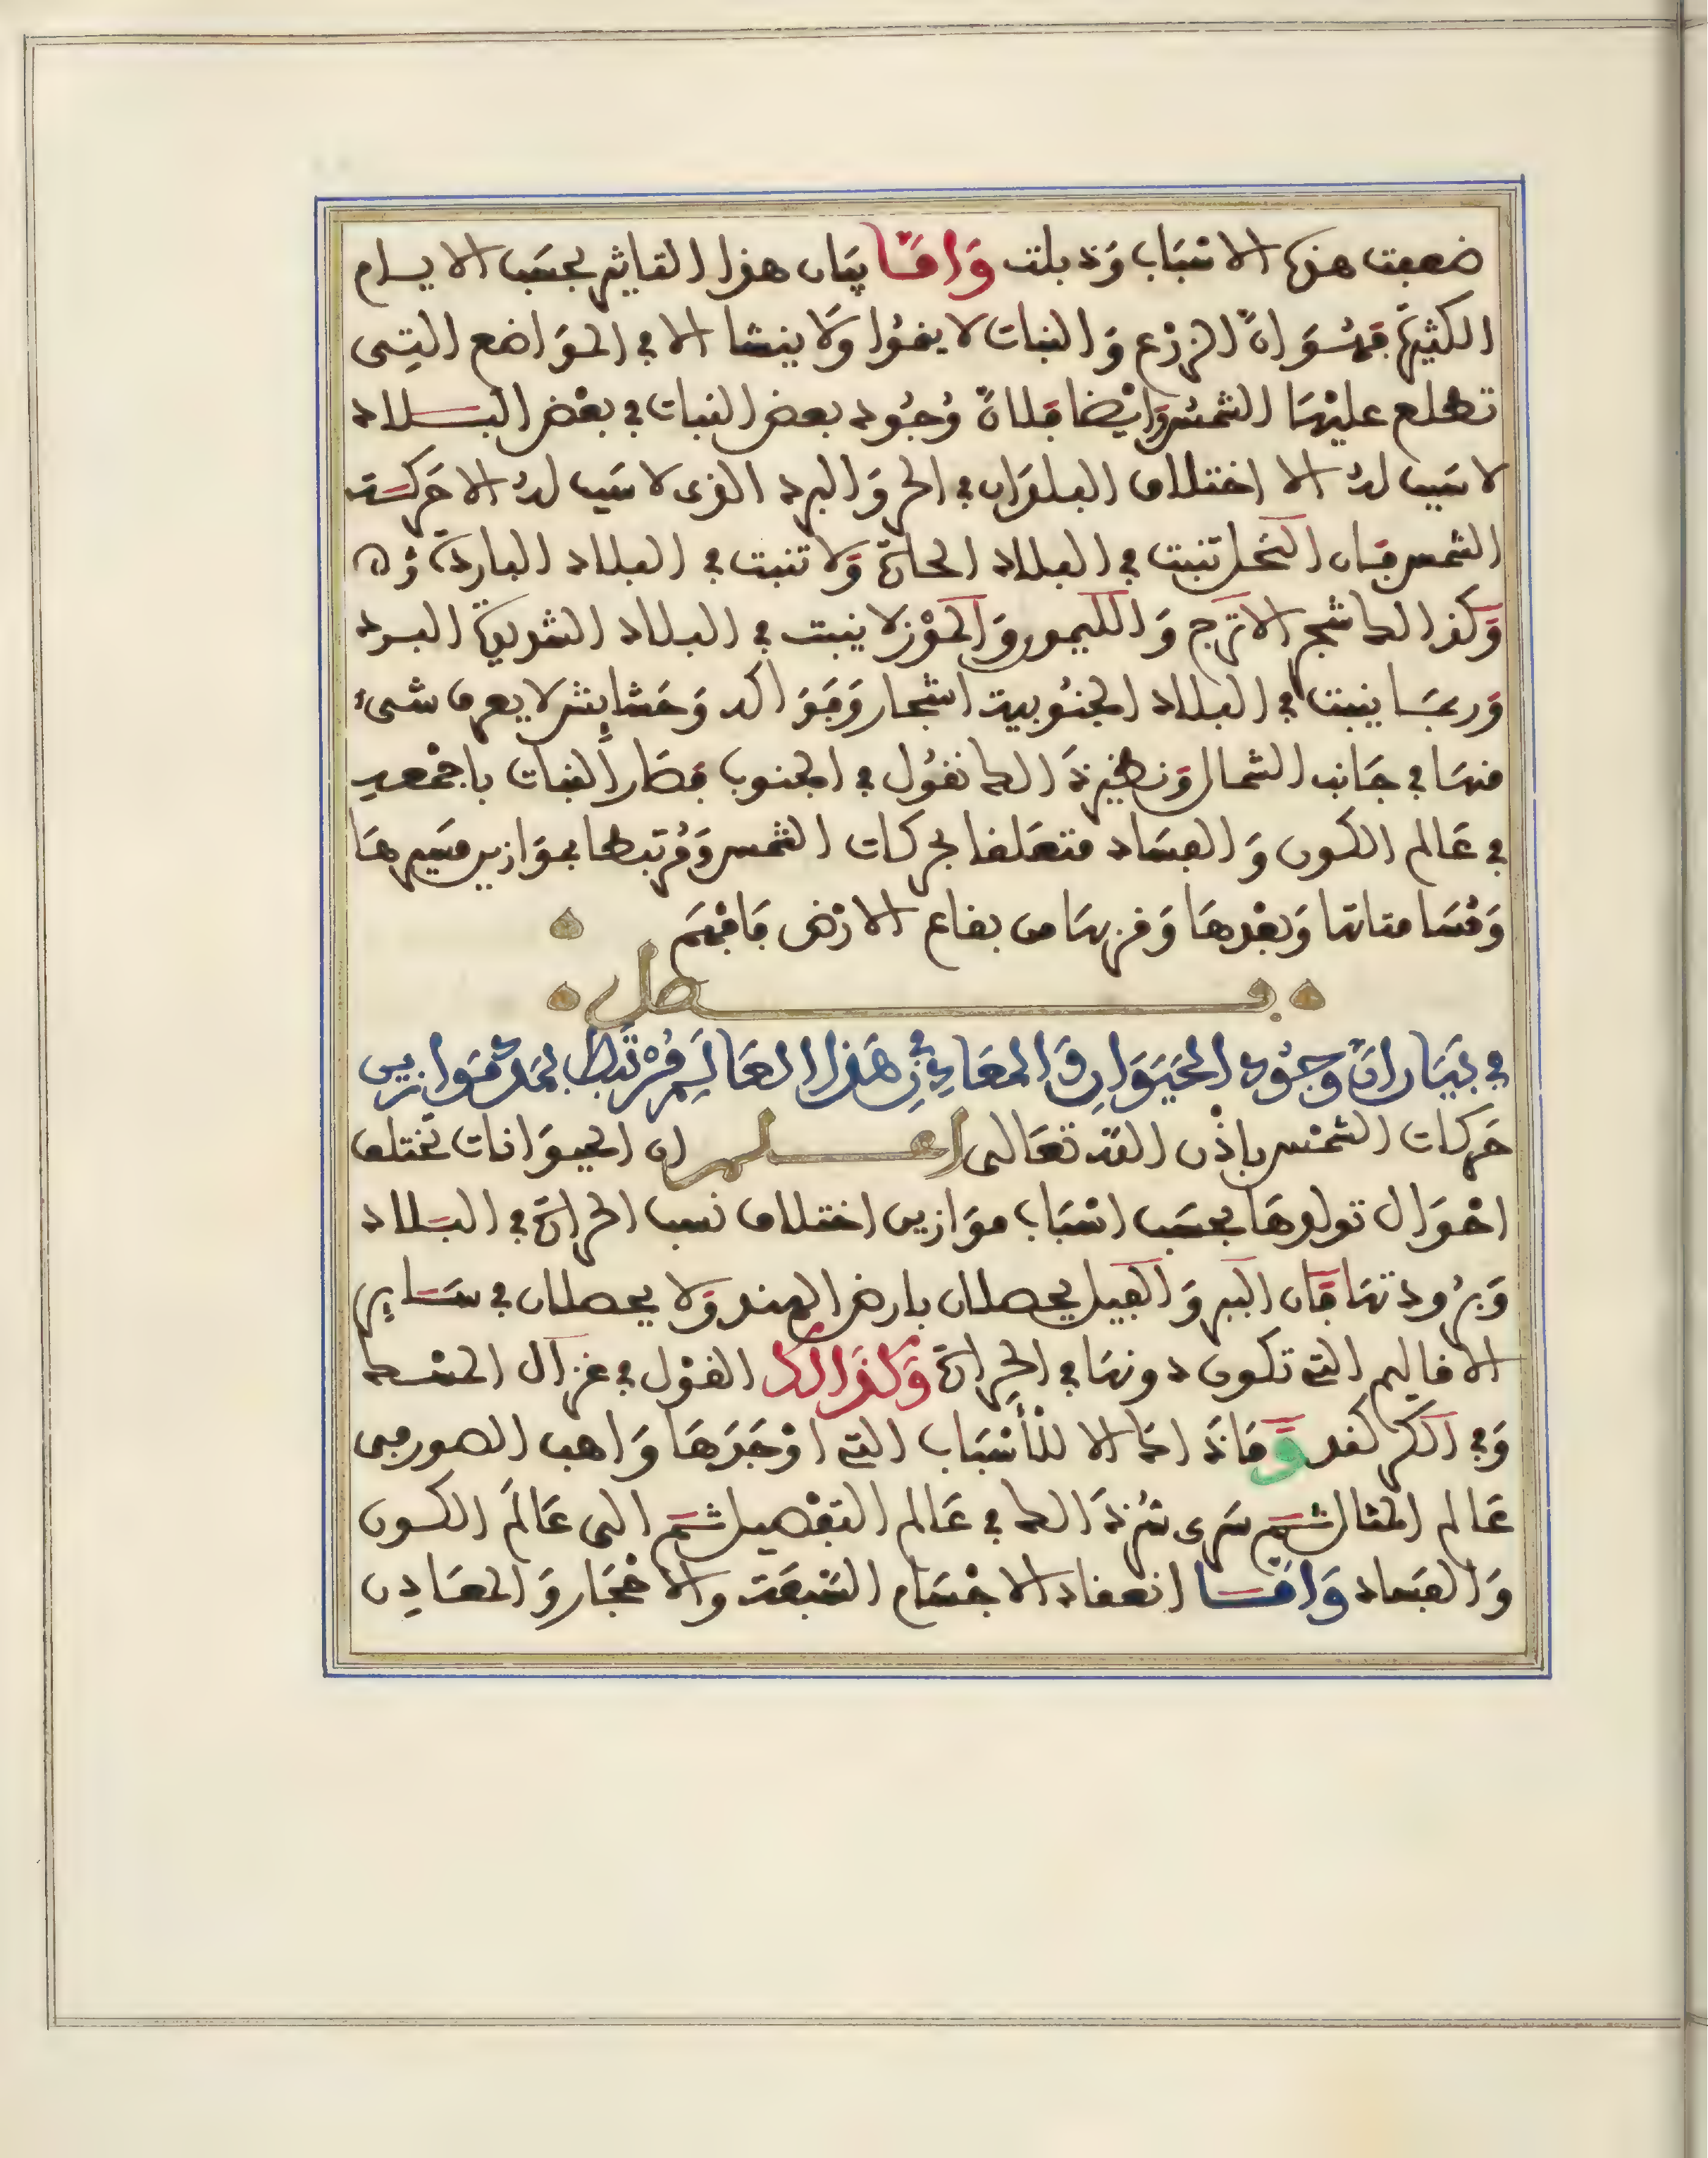 ضعفت هذه الاسْبَاب وَذبلت وَامَّا بيَان هذا التاثير بحسَب الايام
الكثيرة فهُوَ انّ الزرْع وَالنبات لا ينمُوا وَلا ينشا الا في الموَاضع التِى
تطلع عليْهَا الشمسُ وَايْضا فلانّ وُجُود بعض النبات في بعْض البلاد
لا سَبب لهُ الا اختلاف البلدَان في الحر وَالبرد الذى لا سَبب لهُ الا حَركت
الشمس فان النخل تنبت في البلاد الحارة وَلا تنبت في البلاد الباردة
وَكذالك شجر الاترج وَالليمون وَالموْز لا ينبت في البلاد الشديدة البرد
وَربمَا ينبت في البلاد الجنُوبية اشجار وَفوَاكه وَحَشايش لا يعرف شىء
منهَا في جَانب الشمال وَنظير ذَالك نقُول في الجنوب فصَار النبات باجْمعه
في عَالم الكون وَالفسَاد متعَلقا بحركات الشمس وَمُرتبطا بموَازين مسَيرهَا
وَمُسَامتاتها وَبعْدهَا وَقربهَا من بقاع الارْض فَافهَم
فصل
في بَيَان انّ وجُود الحَيَوَان وَالمعَادِن في هَذا العَالَم مُرْتَبط بمدة مَوازين
حَركات الشمْس باذْن الله تعَالى اعلم ان الحيوَانات تختلف
احْوَال تولدهَا بحسَب اسْبَاب موَازين اختلاف نسب الحرارة في البلاد
وَبرُودتهَا فَان الببر وَالفيل يحصلان بارض الهند وَلا يحصلان في سَاير
الاقاليم التى تكون دونهَا في الحرارة وَكذَالك القوْل في غزال المسْك
وَفي الكركند وَمَا ذَاك الا للأسْبَاب التى اوْجَدَهَا وَاهب الصور من
عَالم المثال ثم سَرى سُر ذَالك في عَالم التفْصيل ثم الى عَالَم الكون
وَالفسَاد وَامَّا انعقاد الاجْسَام السَبعَة والاحْجَار وَالمعَادِن